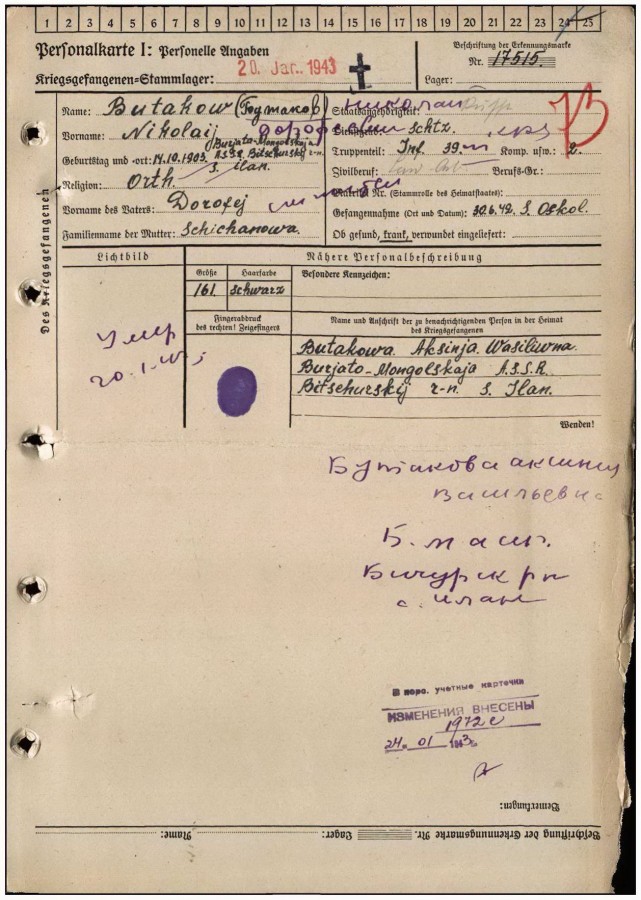 1 2 3 4 5 6 7 8 9 10 11 12 13 14 15 16 17 18 19 20 21 22 23 24 25
Personalkarte I: Personelle Angaben
Kriegsgefangenen-Stammlager:
20. Jan. 1943
Beschriftung der Erkennungsmarke
Nr. 17515.
Lager:
Des Kriegsgefangenen
Name: Butakow (Бутаков)
николай
Vorname: Nikolaij
дорофеевич
Geburtstag und -ort: 14.10.1903. Burjato-Mongolskaja
A.S.S.R. Bitschurskij r-n.
s. Ilan.
Religion: Orth.
Vorname des Vaters: Dorofej
Familienname der Mutter: Schichanowa.
Staatsangehörigkeit:
Dienstgrad: Schtz.
Truppenteil: Inf. 39. Komp. usw.: 2.
Zivilberuf: Berufs-Gr.:
Matrikel Nr. (Stammrolle des Heimatstaates):
Gefangennahme (Ort und Datum): 30.6.42. S. Oskol.
Ob gesund, krank, verwundet eingeliefert:
Lichtbild
Умер
Nähere Personalbeschreibung
Größe Haarfarbe Besondere Kennzeichen:
161. schwarz
Fingerabdruck
des rechten! Zeigefingers
Name und Anschrift der zu benachrichtigenden Person in der Heimat
des Kriegsgefangenen
Butakowa Aksinja Wasiliwna.
Burjato-Mongolskaja A.S.S.R.
Bitschurskij r-n. s. Ilan.
Wenden!
Бутакова аксиния
Васильевна
Б. масп.
Бичурск рн
с. илан
В перс. учетные карточки
ИЗМЕНЕНИЯ ВНЕСЕНЫ
1972с
24. 01
Bemerkungen:
Beschriftung der Erkennungsmarke Nr. Lager: Name: